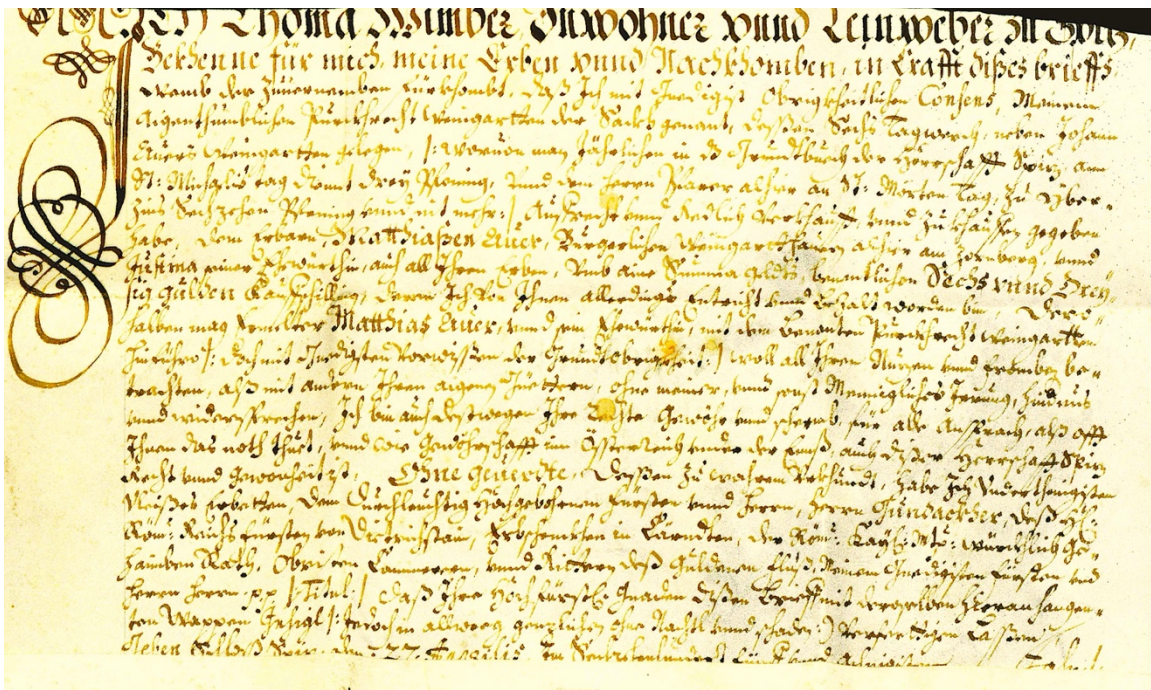 Ich Thoma Wimber, Inwohner vnnd Leinweber zu Spiz,
Bekhenne für mich, meine Erben vnnd Nachkhomben, in Crafft dises brieffs,
der fürkhombt, daß Ich mit Gnedigist Obrigkheitlichen Consens, Meinem
Aigenthumblichen Purckhrecht Weingartten der Säckh genant, dessen Sechs Tagwerch, neben Johann
Euers Weingartten gelegen, /: wouon man Jährlichen in das Grundtbuch der Herrschafft Spiz, am
St: Michaelis tag dient drey Pfening, vnnd dem herrn Pfarer alhier an St: Morten Tag, zu Yber=
zins Sechzehen Pfening vnnd nit mehr :/ Auffrecht vnnd Redlich verkhaufft, vnnd zukhauffen gegeben
habe, dem Erbarn, Matthiaßen Euer, Burgerlichen Weingartt alhier am, vnnd
Justina seiner Ehewürthin, auch all Ihren Erben, Vmb aine Summa geldts benentlichen Sechs vnnd Drey=
sig Gulden Kauffschilling, deren Ich von Ihnen allerdings Entricht vnnd bezalt worden bin, Dero=
halben mag Ermelter Matthias Euer, vnnd sein Ehewürthin, mit dem benanten Purckhrecht Weingartten
hinfüro /: doch mit Gnedigsten vorwissen der Grundt obrigkheit :/ woll all Ihren Nuzen vnnd fromben be=
trachten, alß mit andern Ihren aignen Güettern, ohne meiner, vnnd sonst Menigliches Irrung, hindernus
vnnd widersprechen, Ich bin auch destwegen Ihr Rechte Gewöhr vnnd schermb, für alle Ansprach, alß offt
Ihnen das noth thuet, vnnd wie Gewöhrschafft im Össterreich vnder der Ennß, auch diser Herrschafft Spiz
Recht vnnd Gewonheit ist, Ohne geuerdte, Dessen zu wahrem Vrkhundt, habe Ich Vnderthenigisten
Vleißes Erbetten, dem Durchleuchtig Hochgebohrnen Fürsten vnnd Herrn, Herrn Gundackher, deß Hl:
Röm: Reichs Fürsten von Dietrichstain, Erbschenckhen in Cärndten, der Röm: Kays: May: würckhlich Ge=
haimben Rath, Obristen Cammerern, vnnd Rittern deß Guldenen Fluß, Meinem Gnedigisten Fürsten vnd
Herrn Herrn pp /: Titul :/ daß Ihre Hochfürstl: Gnaden disen Brieff mit deroselben hieran hangen=
ten Wappen Insigl /: iedoch in allweeg genzlichen ohne Nachtl vnnd schaden :/ verfertigen lassen,
Geben Schloß Spiz, den 27. Aprilis, Im Sechzehenhundert